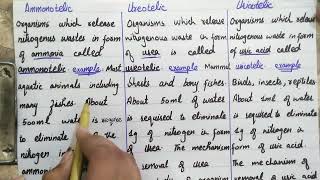 Ammonotelic
Organisms which release
nitrogenous wastes in form
of ammonia called
ammonotelic example. Most
aquatic animals including
many fishes. About
500ml water is require
to eliminate of the
nitrogen in
ammonia
Ureotelic
Organisms which release
nitrogenous waste in form
of urea is called
ureotelic example Mammal
Sharts and bony fishes.
About 50ml of water
is required to eliminate
1g of nitrogen in form
of urea. The mechanism
removal of urea
Uricotelic
Organisms which release
nitrogenous waste in form
of uric acid called
uricotelic example.
Birds, insects, reptiles
About 1ml of water
is required to eliminate
1g of nitrogen in form
of uric acid.
The mechanism of
removal of uric acid